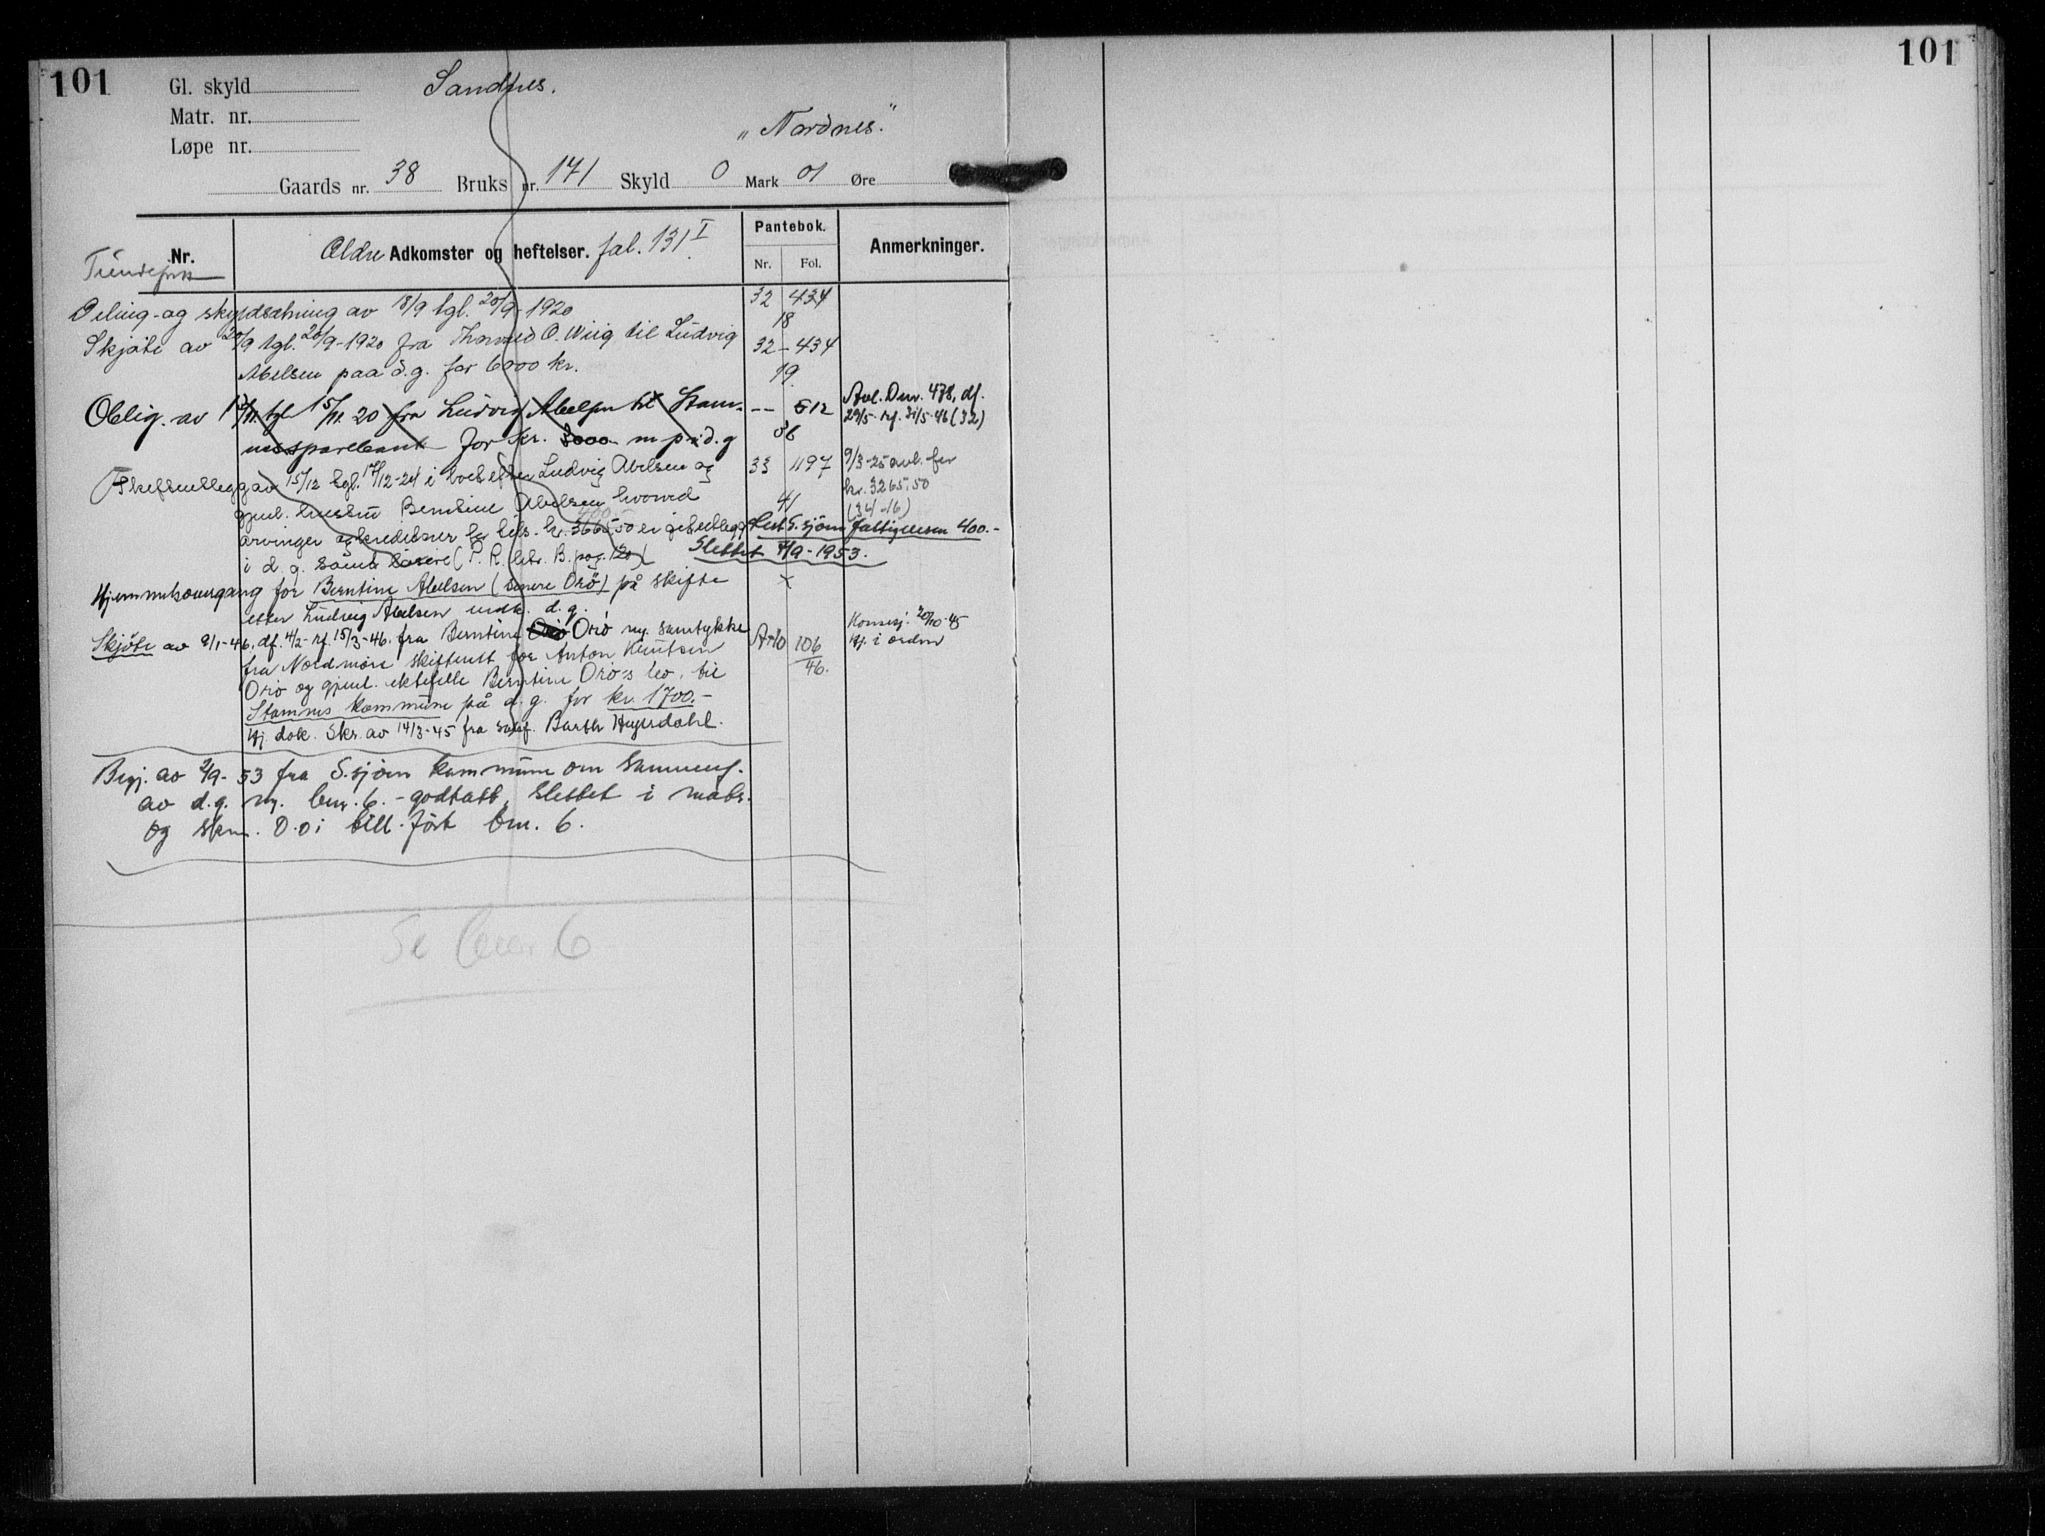 101
101
Gl. skyld
Sandnes.
Matr. nr.
„Nordnes."
Løpe nr.
Gaards nr. 38 Bruks nr. 141 Skyld 0 Mark 01 Øre
Nr.
Ældre Adkomster og heftelser. fol. 131 I
Pantebok.
Nr. Fol.
Anmerkninger.
Deling- og skyldsætning av 18/9 tgl. 20/9-1920 32 434
18
Skjøte av 20/9 tgl. 20/9-1920 fra Thorvald O. Wiig til Ludvig 32 - 434
Abelsen paa d.g. for 6000 kr. 19.
Oblig. av tgl 15/11 20 fra Ludvig Abelsen til Stam- -- 512 Avl. Dnr. 478, df.
nessparebank for kr. 8000 m pr i d.g 36 29/5- rf. 31/5-46 (32)
Skifteutlegg av 15/12 tgl. 17/12-24 i boet efter Ludvig Abelsen og 33 497 9/3-25 avl. for
gjenl. hustru Berntine Abelsen hvorved 41 kr. 3265,50
(34-16)
arvinger og kreditorer for tils. kr. 3665,50 er gitt utlegg Rest S.sjøen fattigvesen 400.-
i d.g. samt løsøre (P.R. litr. B. pag. 120) Slettet 7/9-1953.
Hjemmelsovergang for Berntine Abelsen (senere Orø) på skifte x
etter Ludvig Abelsen vedk. d.g.
Skjøte av 9/1-46, df. 4/2- rf. 15/3-46. fra Berntine Orø m. samtykke A-10 106 Konsesj. 20/10-45
fra Nordmøre skifterett for Anton Knutsen 46. Hj. i orden
Orø og gjenl. ektefelle Berntine Orø's bo, til
Stamnes kommune på d.g. for kr. 1700.-
Hj. dok. Skr. av 14/3-45 fra sakf. Barth Heyerdahl.
Begj. av 2/9-53 fra S.sjøen kommune om sammenf.
av d.g. m. bnr. 6. - godtatt, slettet i matr.
og skm. 0.01 till. ført bnr. 6.
Se bnr 6